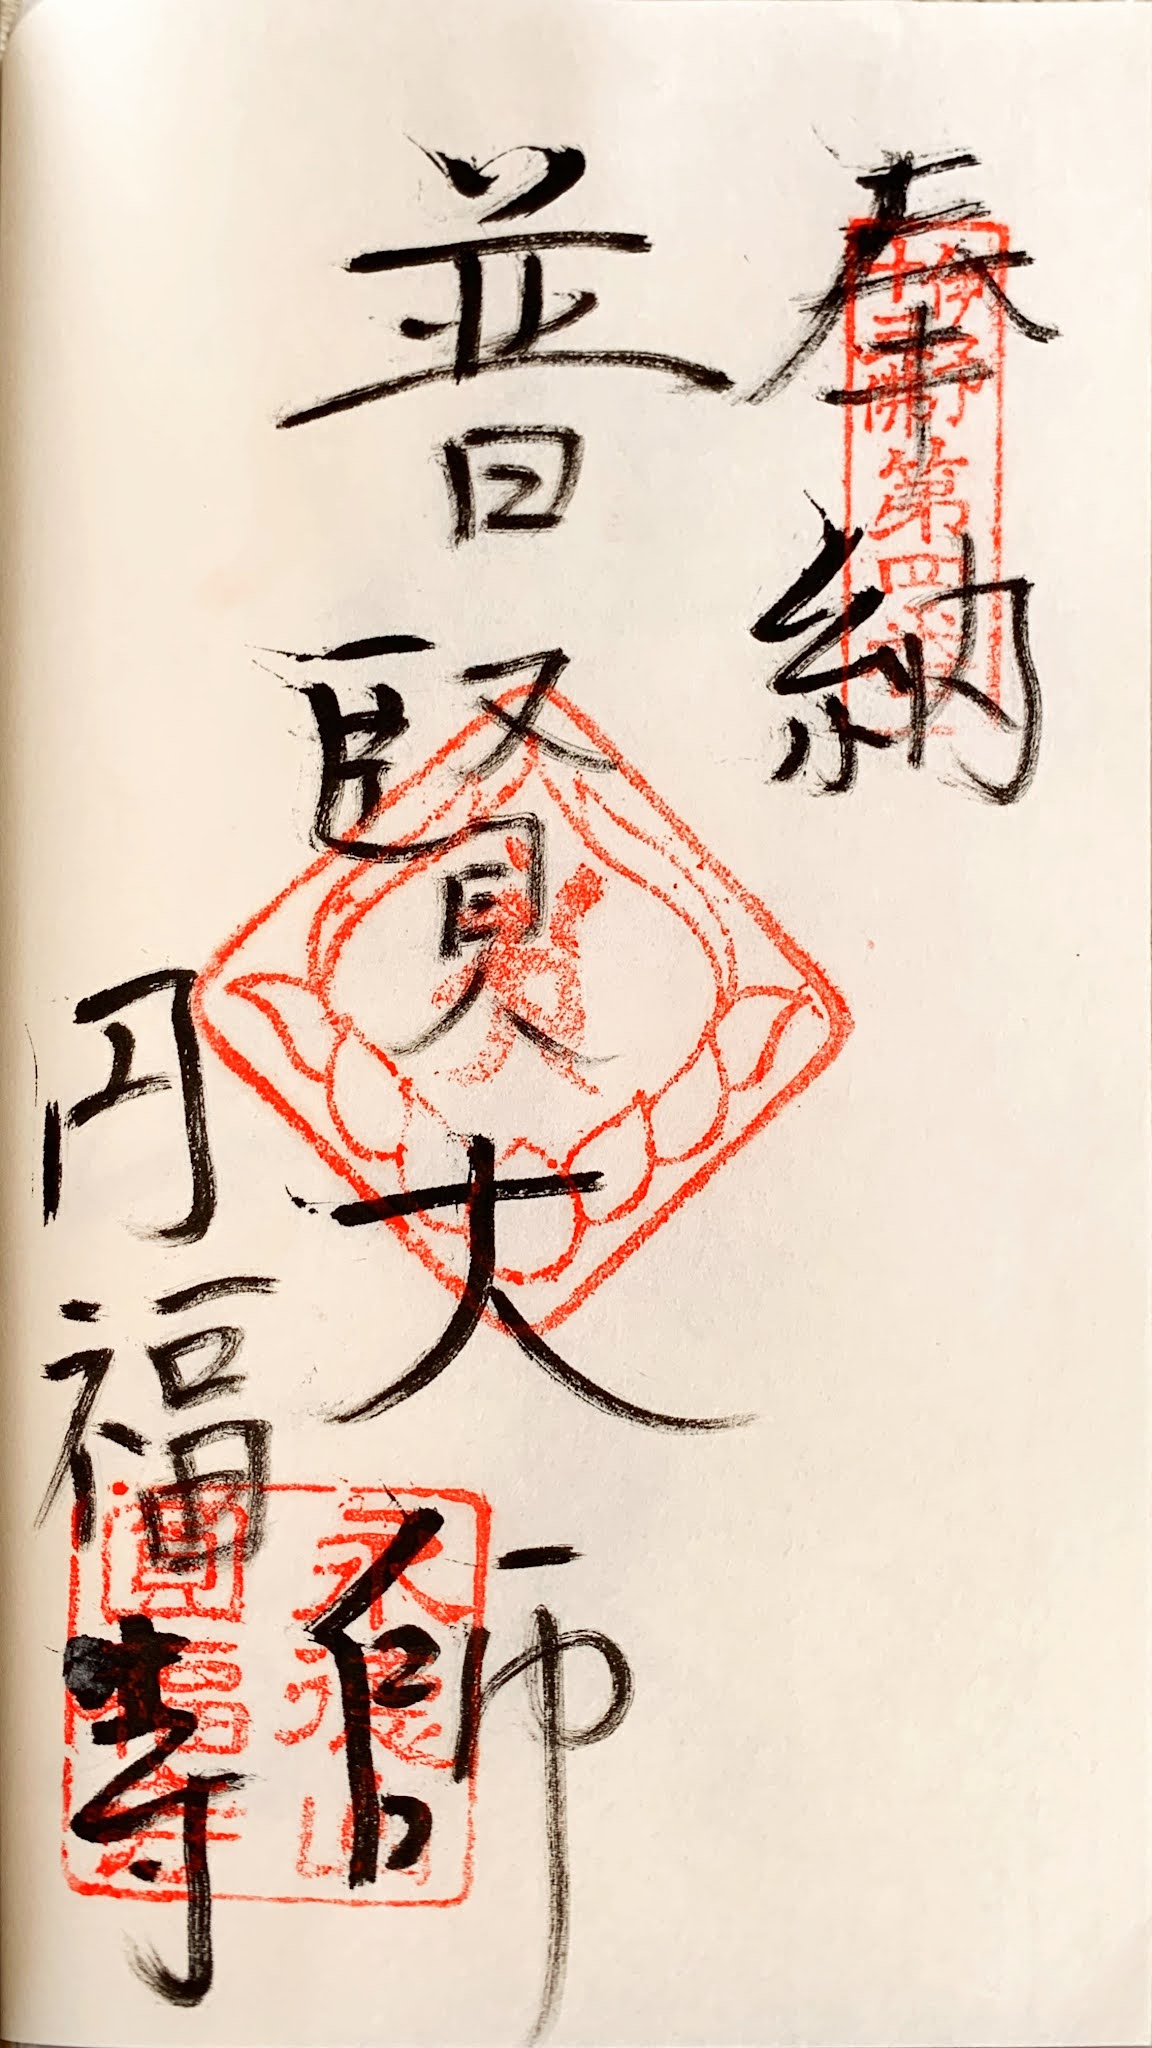 奉納
伊予
十三佛
第四番
普賢大師
円福寺
永徳山
圓福寺